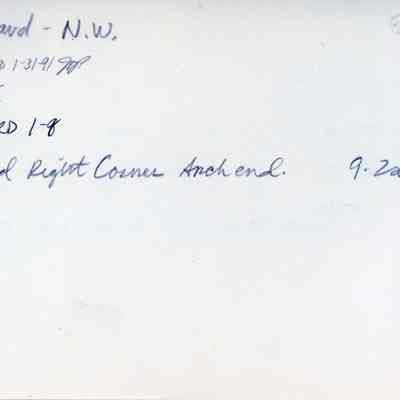 ard - N.W.
D 1-31-91
RD 1-8
d Right Corner Arch end. 9-2